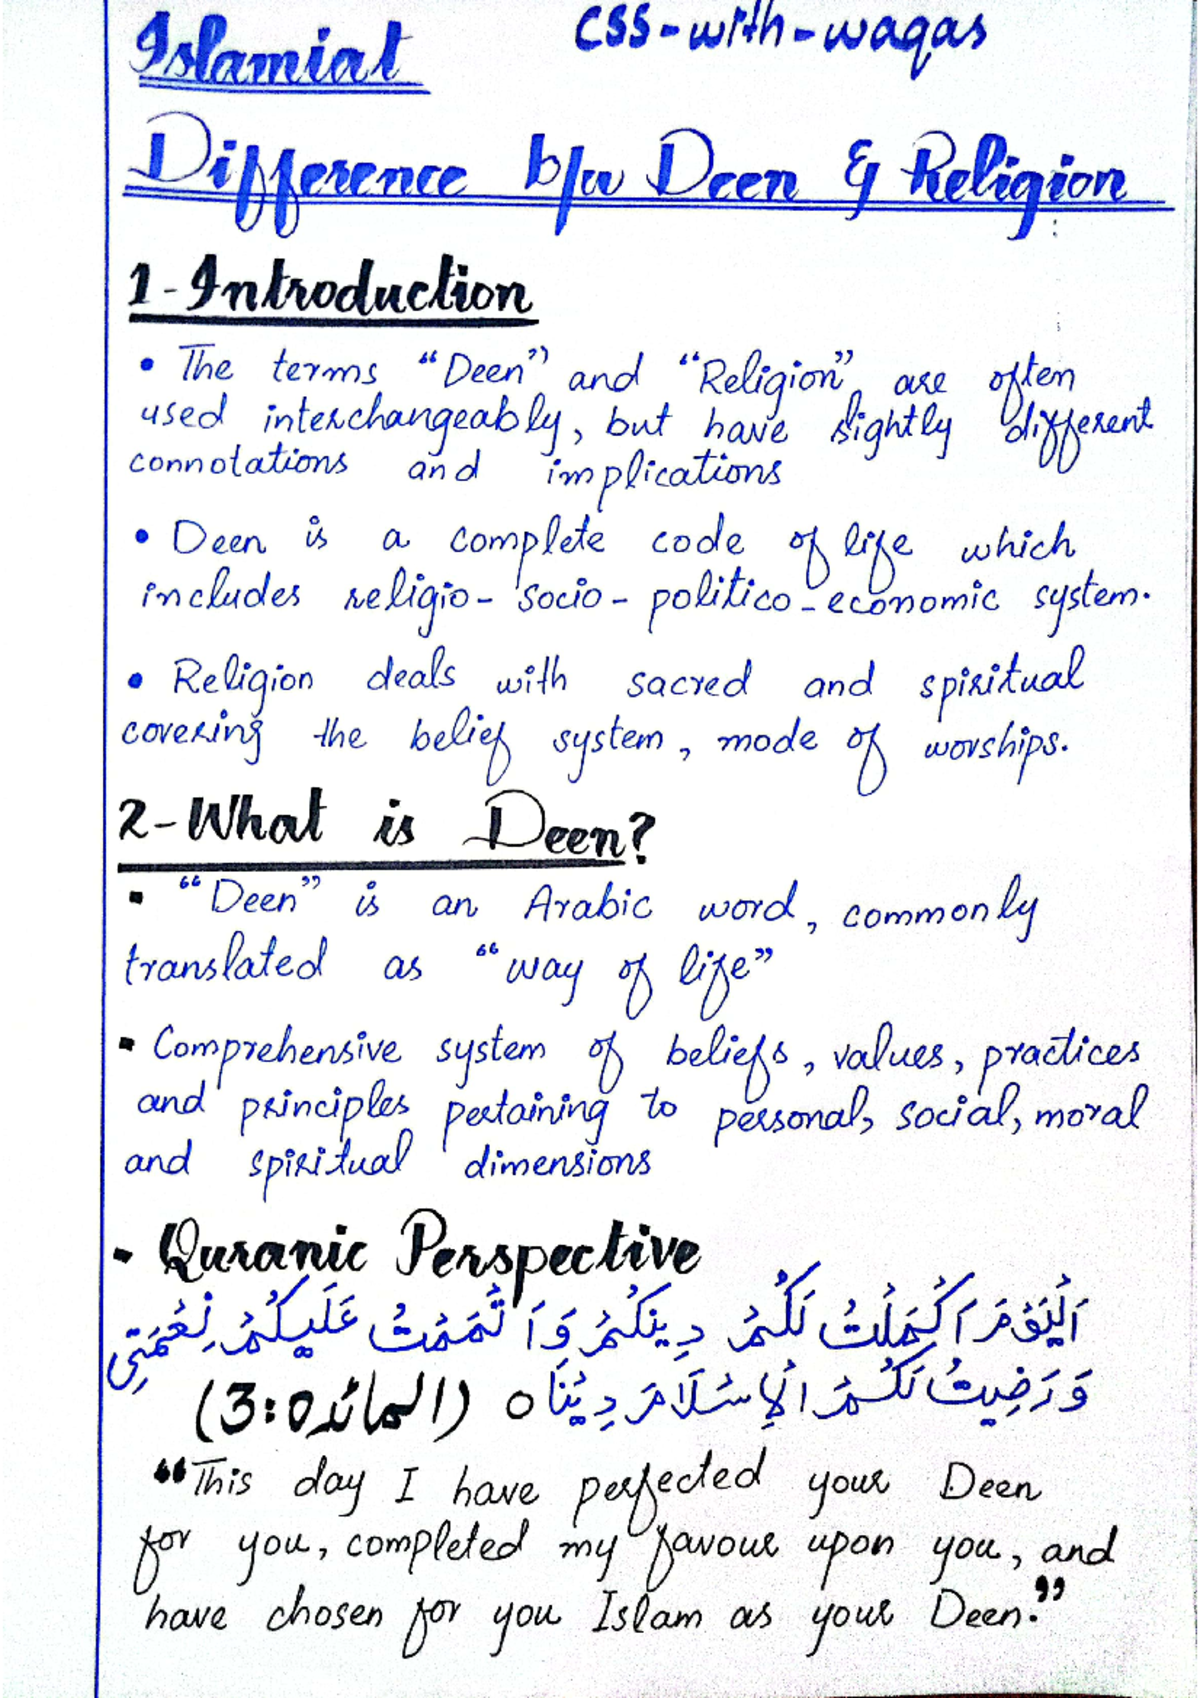 Islamiat
CSS-with-waqas
Difference b/w Deen & Religion
1-Introduction
• The terms "Deen" and "Religion" are often
used interchangeably, but have slightly different
connotations and implications
• Deen is a complete code of life which
includes religio-socio-politico-economic system.
• Religion deals with sacred and spiritual
covering the belief system, mode of worships.
2-What is Deen?
▪ "Deen" is an Arabic word, commonly
translated as "way of life"
▪ Comprehensive system of beliefs, values, practices
and principles pertaining to personal, social, moral
and spiritual dimensions
▪ Quranic Perspective
اَلْيَوْمَ اَكْمَلْتُ لَكُمْ دِينَكُمْ وَاَتْمَمْتُ عَلَيْكُمْ نِعْمَتِى
وَرَضِيتُ لَكُمُ الْاِسْلَامَ دِيْنًا ٥ (المائدہ:3)
"This day I have perfected your Deen
for you, completed my favour upon you, and
have chosen for you Islam as your Deen."